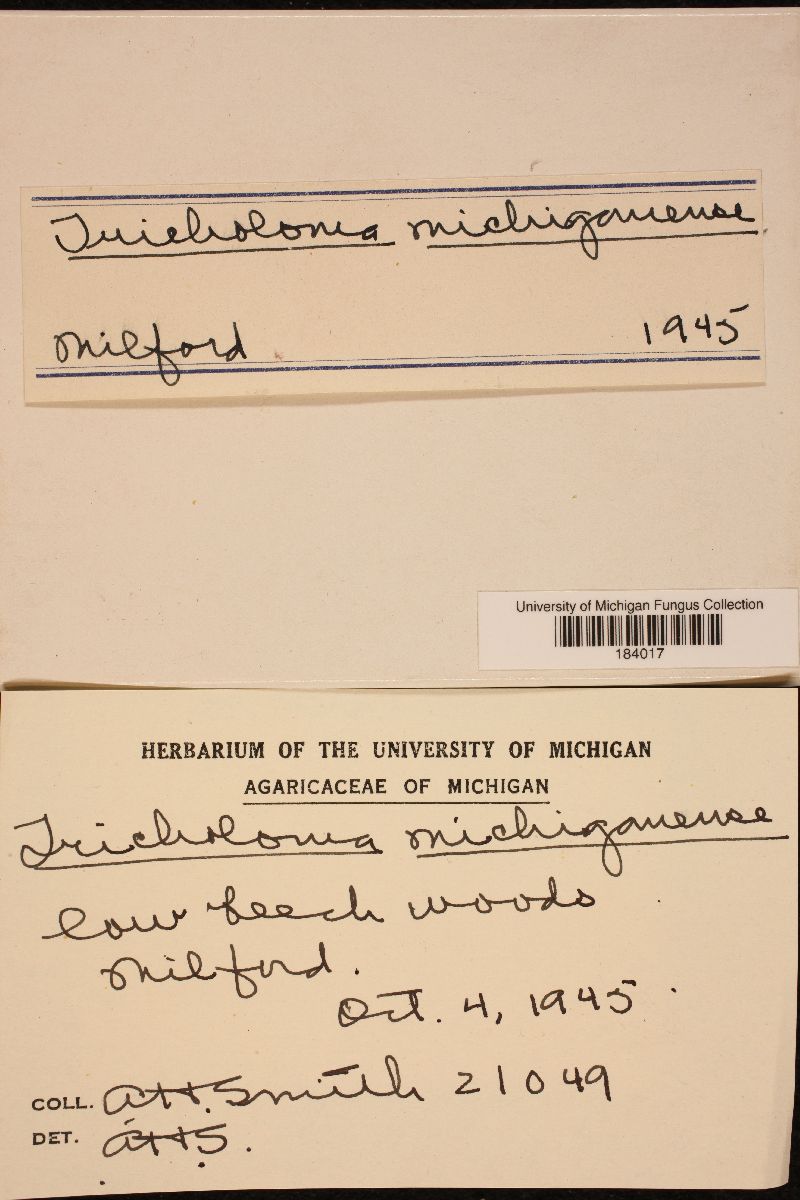 Tricholoma michiganense
Milford 1945
University of Michigan Fungus Collection
184017
HERBARIUM OF THE UNIVERSITY OF MICHIGAN
AGARICACEAE OF MICHIGAN
Tricholoma michiganense
low beech woods
Milford.
Oct. 4, 1945.
COLL. AH.Smith 21049
DET. AHS.